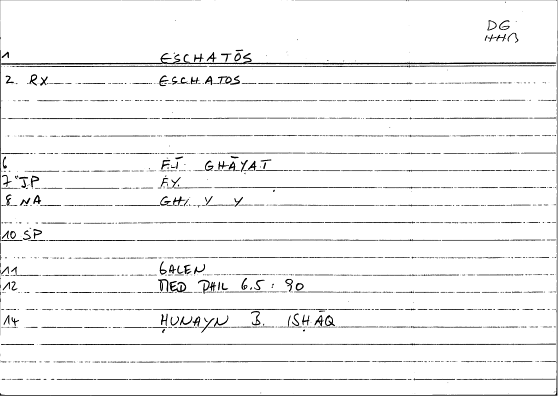 DG
HHB
1 ESCHATŌS
2. RX ESCHATOS
6 F.Ī GHĀYAT
7 JP F.Y.
8 NA GH/ Y Y
10 SP
11 GALEN
12 MED PHIL 6.5 : 90
14 ḤUNAYN B. ISḤĀQ